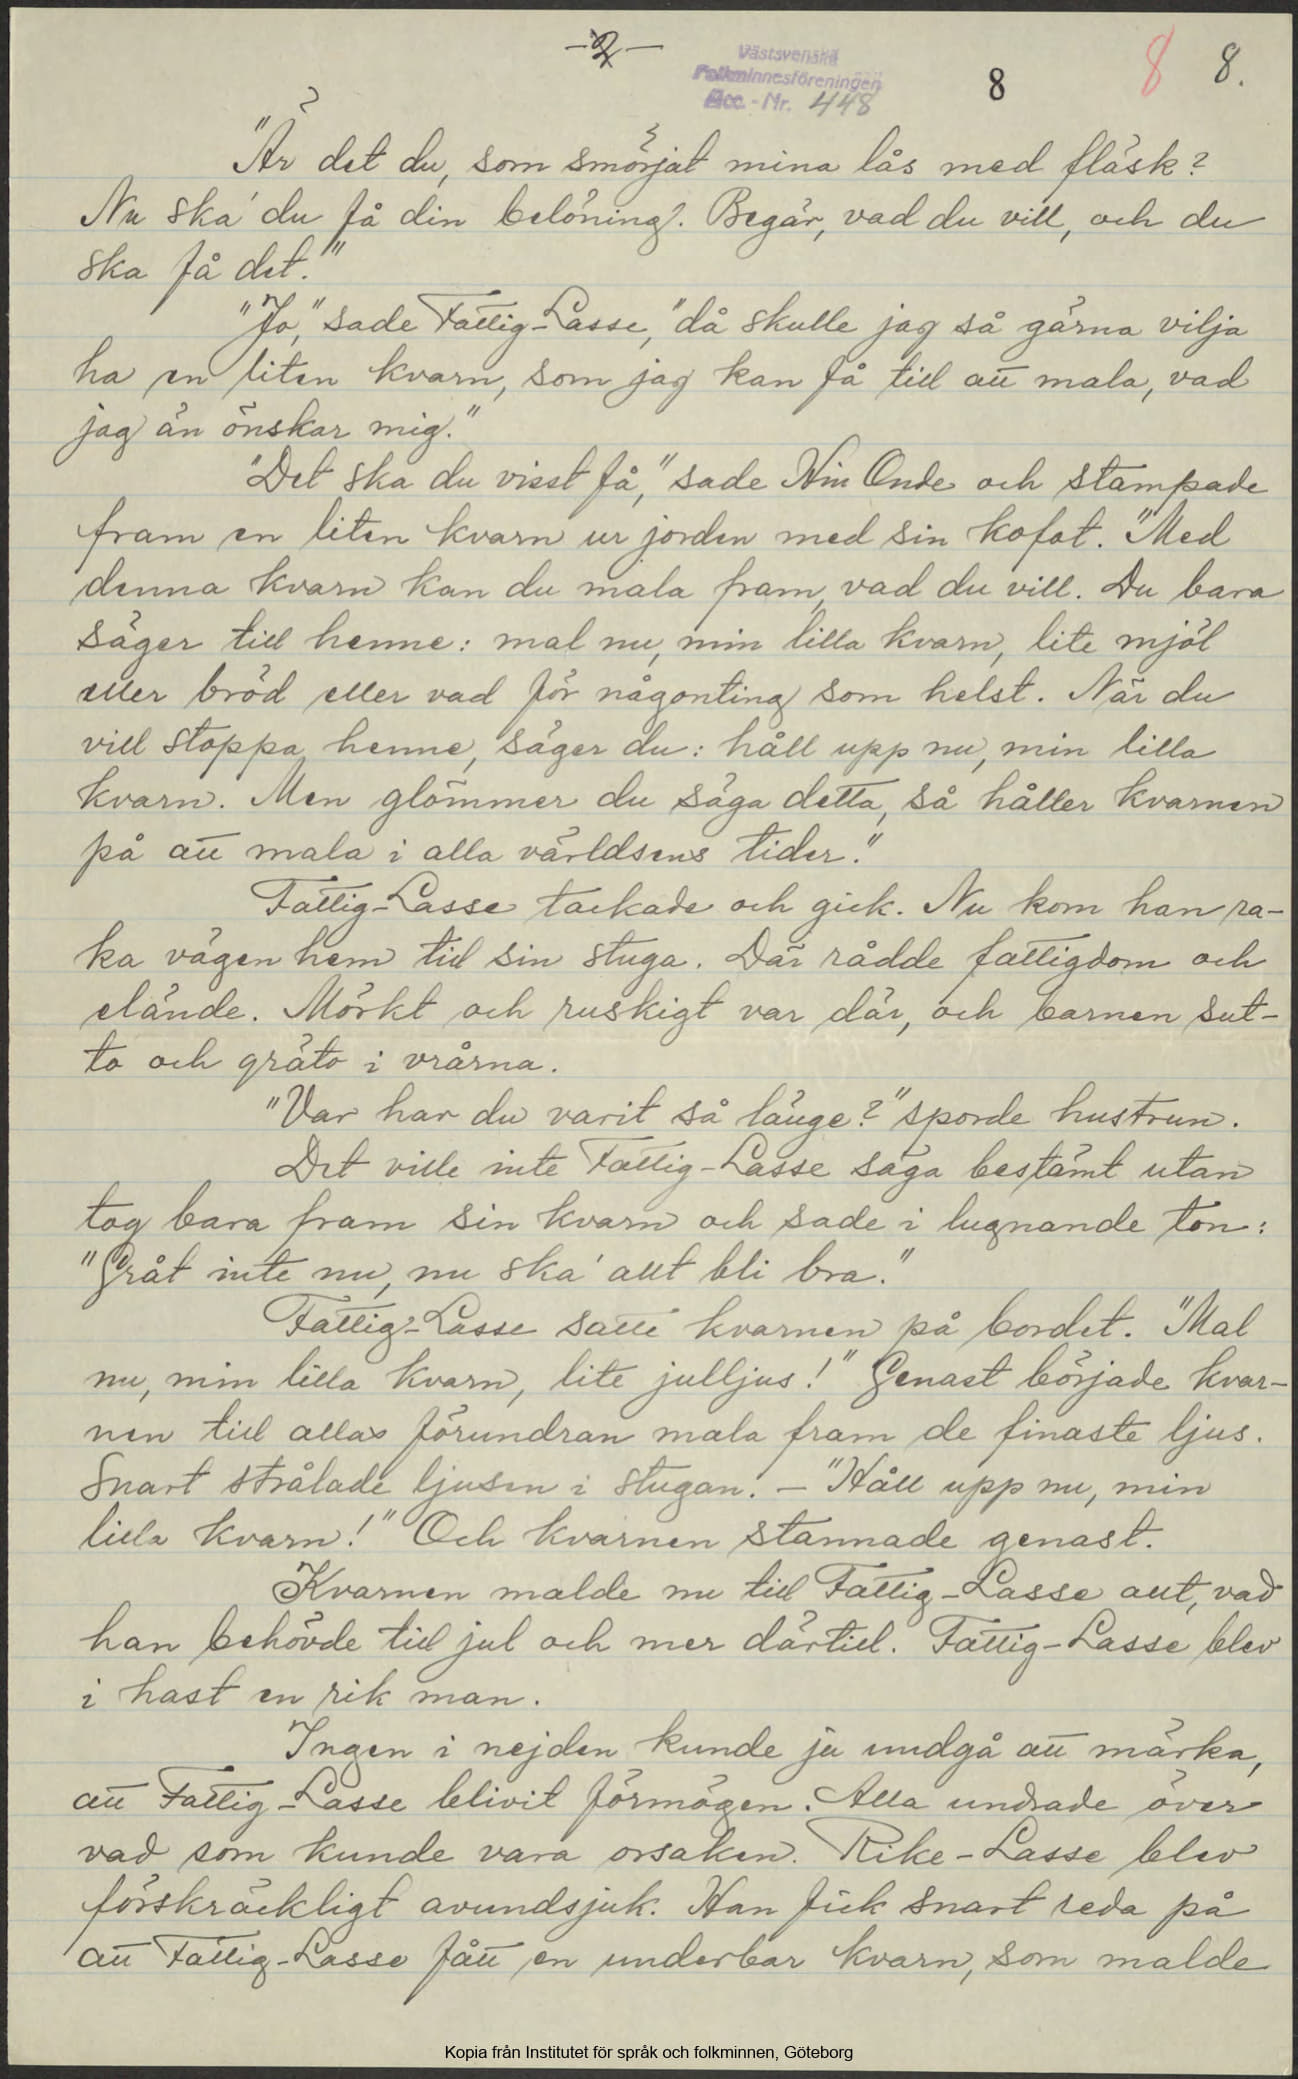 -2-
Västsvenska
Folkminnesföreningen
Acc. - Nr. 448
8
8
8.
"Är det du, som smörjat mina lås med fläsk?
Nu ska' du få din belöning. Begär, vad du vill, och du
ska få det."
"Jo," sade Fattig-Lasse, "då skulle jag så gärna vilja
ha en liten kvarn, som jag kan få till att mala, vad
jag än önskar mig."
"Det ska du visst få," sade Hin Onde och stampade
fram en liten kvarn ur jorden med sin kofot. "Med
denna kvarn kan du mala fram, vad du vill. Du bara
säger till henne: mal nu, min lilla kvarn, lite mjöl
eller bröd eller vad för någonting som helst. När du
vill stoppa henne, säger du: håll upp nu, min lilla
kvarn. Men glömmer du säga detta, så håller kvarnen
på att mala i alla världsens tider."
Fattig-Lasse tackade och gick. Nu kom han ra-
ka vägen hem till sin stuga. Där rådde fattigdom och
elände. Mörkt och ruskigt var där, och barnen sut-
to och gräto i vrårna.
"Var har du varit så länge?" sporde hustrun.
Det ville inte Fattig-Lasse säga bestämt utan
tog bara fram sin kvarn och sade i lugnande ton:
"Gråt inte nu, nu ska' allt bli bra."
Fattig-Lasse satte kvarnen på bordet. "Mal
nu, min lilla kvarn, lite julljus!" Genast började kvar-
nen till allas förundran mala fram de finaste ljus.
Snart strålade ljusen i stugan. - "Håll upp nu, min
lilla kvarn!" Och kvarnen stannade genast.
Kvarnen malde nu till Fattig-Lasse allt, vad
han behövde till jul och mer därtill. Fattig-Lasse blev
i hast en rik man.
Ingen i nejden kunde ju undgå att märka,
att Fattig-Lasse blivit förmögen. Alla undrade över
vad som kunde vara orsaken. Rike-Lasse blev
förskräckligt avundsjuk. Han fick snart reda på
att Fattig-Lasse fått en underbar kvarn, som malde
Kopia från Institutet för språk och folkminnen, Göteborg